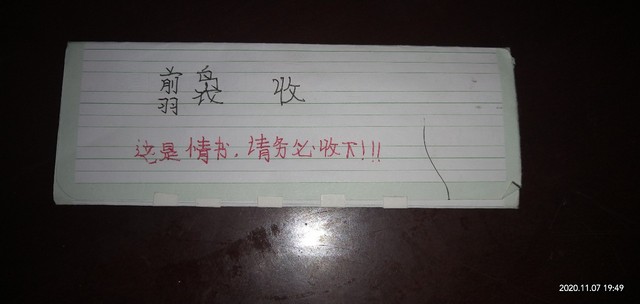 翦袅 收
这是情书,请务必收下!!!
2020.11.07 19:49